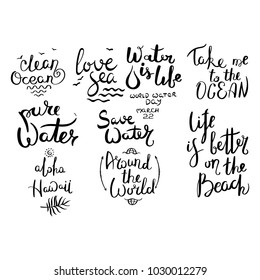 clean
Ocean
love
sea
Water
is life
WORLD WATER
DAY
MARCH
22
Take me
to the
OCEAN
pure
Water
Save
Water
Life
is better
on the
Beach
aloha
Hawaii
Around
the World
shutterstock.com · 1030012279